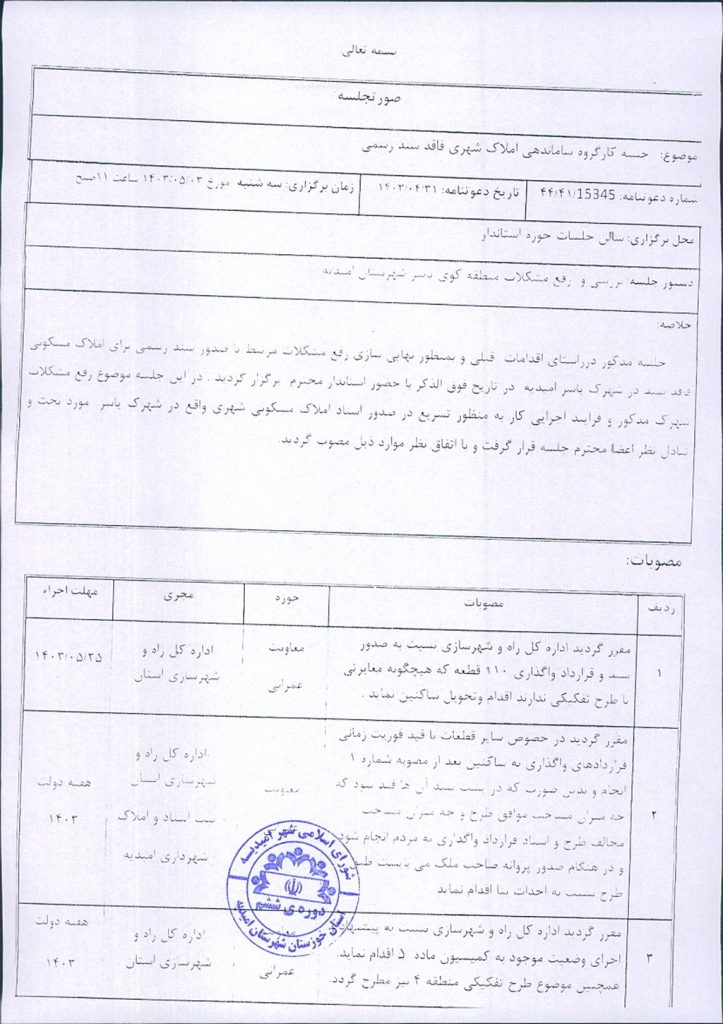 بسمه تعالی
صورتجلسه
موضوع: جلسه کارگروه ساماندهی املاک شهری فاقد سند رسمی
شماره دعوتنامه: ۴۴/۴۱/15345
تاریخ دعوتنامه: ۱۴۰۳/۰۴/۳۱
زمان برگزاری: سه شنبه مورخ ۱۴۰۳/۰۵/۰۳ ساعت ۱۱صبح
محل برگزاری: سالن جلسات حوزه استاندار
دستور جلسه: بررسی و رفع مشکلات منطقه کوی یاسر شهرستان امیدیه
خلاصه:
جلسه مذکور درراستای اقدامات قبلی و بمنظور نهایی سازی رفع مشکلات مرتبط با صدور سند رسمی برای املاک مسکونی
فاقد سند در شهرک یاسر امیدیه در تاریخ فوق الذکر با حضور استاندار محترم برگزار گردید . در این جلسه موضوع رفع مشکلات
شهرک مذکور و فرایند اجرایی کار به منظور تسریع در صدور اسناد املاک مسکونی شهری واقع در شهرک یاسر مورد بحث و
تبادل نظر اعضا محترم جلسه قرار گرفت و با اتفاق نظر موارد ذیل مصوب گردید.
مصوبات:
ردیف مصوبات حوزه مجری مهلت اجراء
۱
مقرر گردید اداره کل راه و شهرسازی نسبت به صدور
سند و قرارداد واگذاری ۱۱۰ قطعه که هیچگونه مغایرتی
با طرح تفکیکی ندارند اقدام وتحویل ساکنین نماید .
معاونت
عمرانی
اداره کل راه و
شهرسازی استان
۱۴۰۳/۰۵/۲۵
۲
مقرر گردید در خصوص سایر قطعات با قید فوریت زمانی
قراردادهای واگذاری به ساکنین بعد از مصوبه شماره ۱
انجام و بدین صورت که در پشت سند آن ها قید شود که
چه میزان مساحت موافق طرح و چه میزان مساحت
مخالف طرح و اسناد قرارداد واگذاری به مردم انجام شود
و در هنگام صدور پروانه صاحب ملک می بایست طبق
طرح نسبت به احداث بنا اقدام نماید
معاونت
اداره کل راه و
شهرسازی استان
ثبت اسناد و املاک
شهرداری امیدیه
هفته دولت
۱۴۰۳
۳
مقرر گردید اداره کل راه و شهرسازی نسبت به پیشنهاد
اجرای وضعیت موجود به کمیسیون ماده ۵ اقدام نماید.
همچنین موضوع طرح تفکیکی منطقه ۴ نیز مطرح گردد.
معاونت
عمرانی
اداره کل راه و
شهرسازی استان
هفته دولت
۱۴۰۳
شورای اسلامی شهر امیدیه
دوره ی ششم
استان خوزستان شهرستان امیدیه